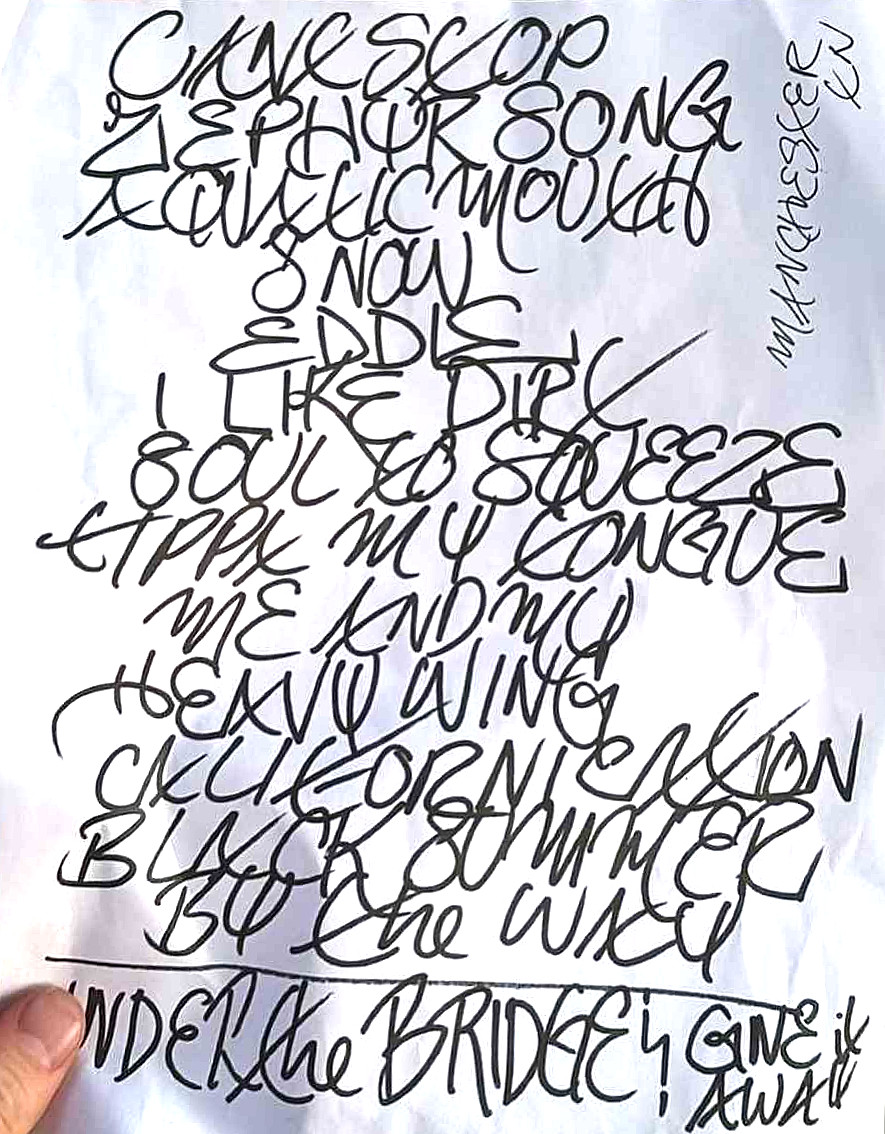 CANTSTOP
ZEPHYR SONG
AQUATIC MOUTH
SNOW
EDDIE
I LIKE DIRT
SOUL TO SQUEEZE
TIPPA MY TONGUE
ME AND MY
HEAVY WING
CALIFORNICATION
BLACK SUMMER
BY the WAY
UNDER the BRIDGE
GIVE it
AWAY
MANCHESTER
TN